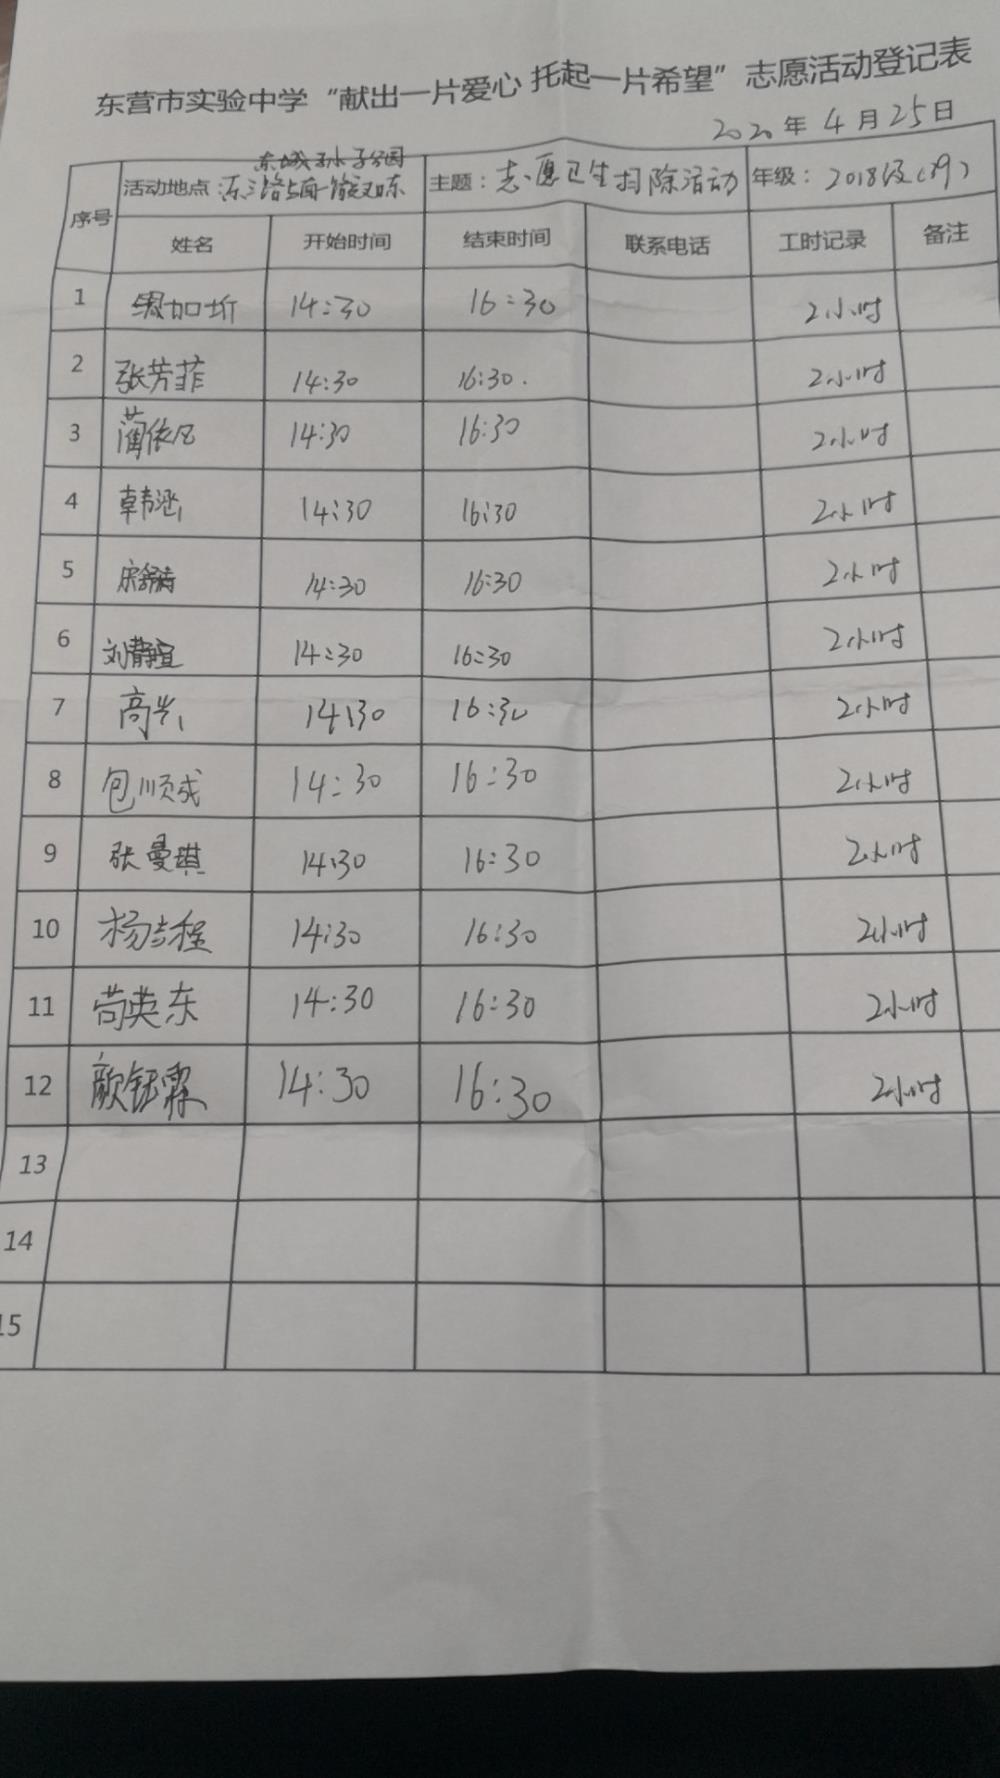 东营市实验中学“献出一片爱心 托起一片希望”志愿活动登记表
2020年4月25日
序号 活动地点: 主题:志愿卫生扫除活动 年级:2018级
姓名 开始时间 结束时间 联系电话 工时记录 备注
1 14:30 16:30 2小时
2 张芳菲 14:30 16:30. 2小时
3 蔺依凡 14:30 16:30 2小时
4 韩涵 14:30 16:30 2小时
5 14:30 16:30 2小时
6 刘静宜 14:30 16:30 2小时
7 高 14:30 16:30 2小时
8 包顺成 14:30 16:30 2小时
9 张曼琪 14:30 16:30 2小时
10 杨吉程 14:30 16:30 2小时
11 苟英东 14:30 16:30 2小时
12 颜钰霖 14:30 16:30 2小时
13
14
15